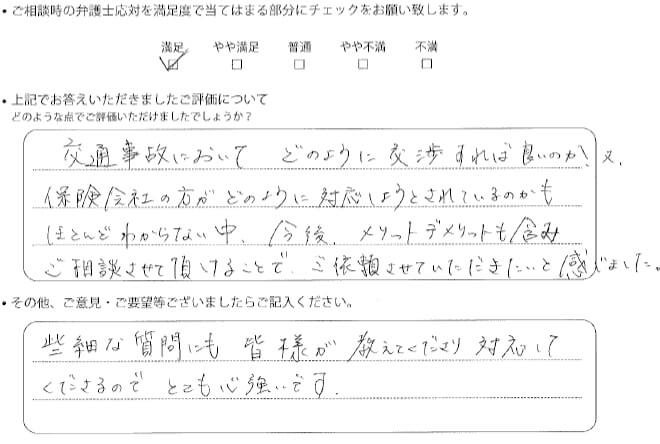 ・ご相談時の弁護士応対を満足度で当てはまる部分にチェックをお願い致します。
満足 やや満足 普通 やや不満 不満
・上記でお答えいただきましたご評価について
どのような点でご評価いただけましたでしょうか？
交通事故において どのように交渉すれば良いのか、又、
保険会社の方がどのように対応しようとされているのかも
ほとんどわからない中、今後、メリットデメリットも含み
ご相談させて頂けることで、ご依頼させていただきたいと感じました。
・その他、ご意見・ご要望等ございましたらご記入ください。
些細な質問にも 皆様が 教えてくださり 対応して
くださるので とても心強いです.